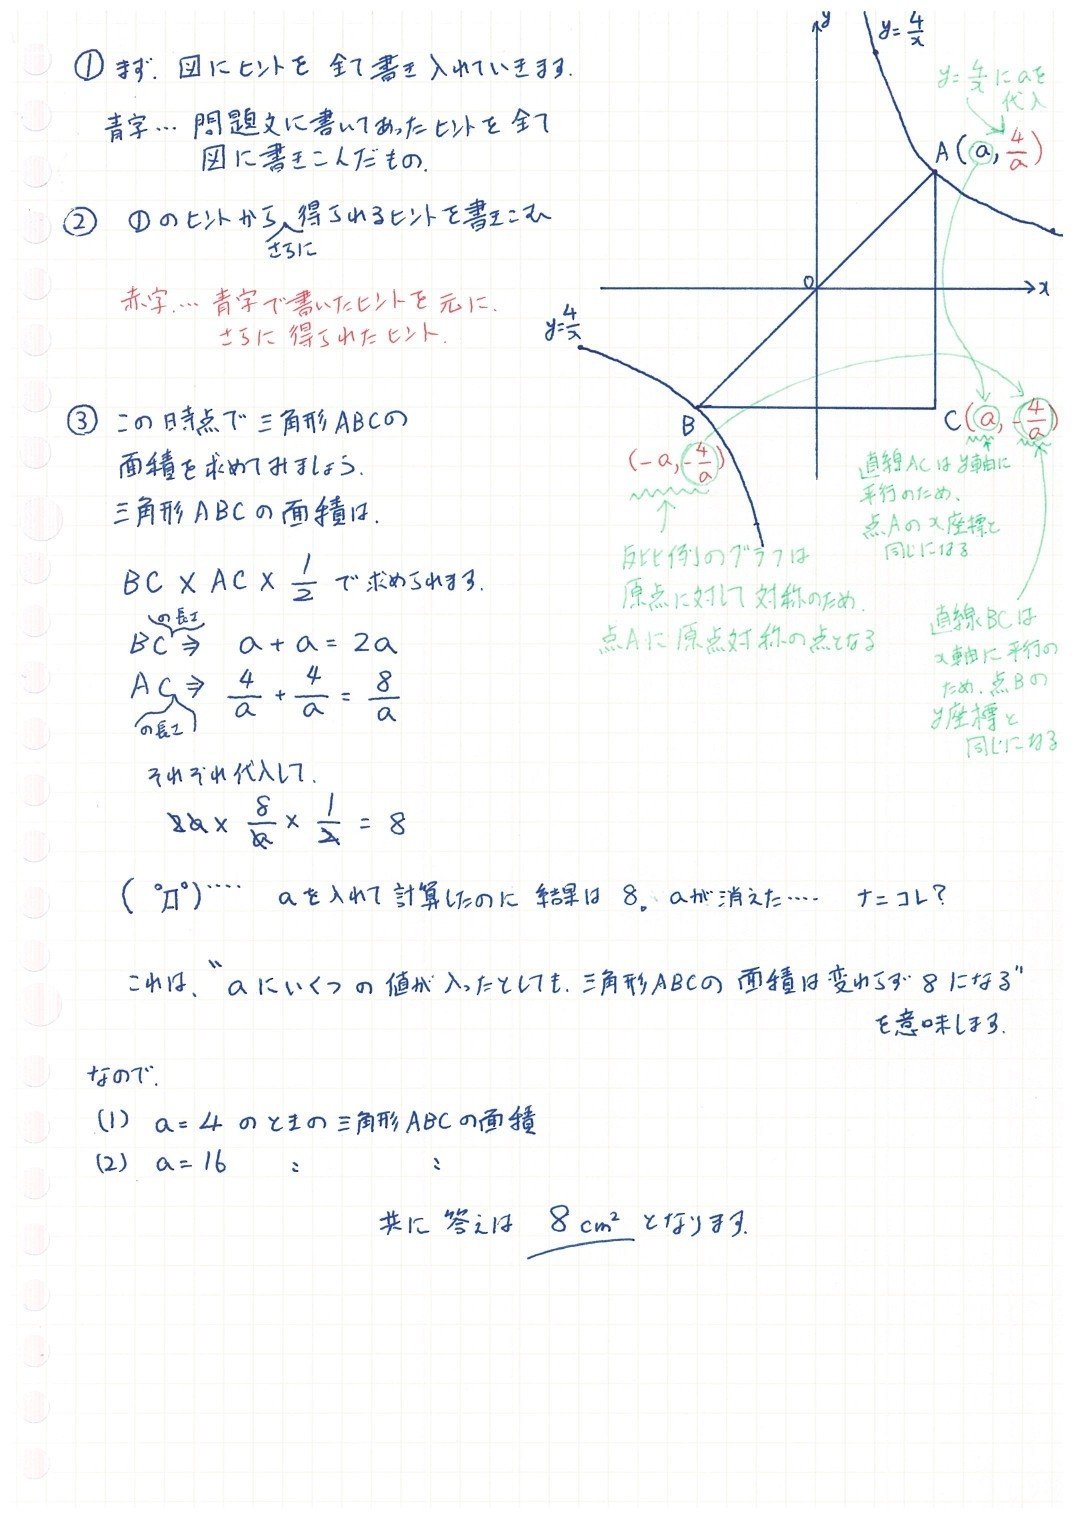 ① まず、図にヒントを全て書き入れていきます。
青字… 問題文に書いてあったヒントを全て
図に書きこんだもの。
② ①のヒントから得られるヒントを書きこむ
さらに
赤字… 青字で書いたヒントを元に、
さらに得られたヒント。
③ この時点で三角形ABCの
面積を求めてみましょう。
三角形ABCの面積は、
BC × AC × 1/2 で求められます。
の長さ
BC ⇒ a + a = 2a
AC ⇒ 4/a + 4/a = 8/a
の長さ
それぞれ代入して、
2a × 8/a × 1/2 = 8
( ﾟДﾟ)‥‥ aを入れて計算したのに結果は8。aが消えた‥‥ ナニコレ?
これは、"aにいくつの値が入ったとしても、三角形ABCの面積は変わらず8になる"
を意味します。
なので、
(1) a=4 のときの三角形ABCの面積
(2) a=16 : :
共に答えは 8cm² となります。
y
y=4/x
y=4/xにaを
代入
A(a, 4/a)
O
x
y=4/x
B
(-a, -4/a)
C(a, -4/a)
直線ACはy軸に
平行のため、
点Aのx座標と
同じになる
反比例のグラフは
原点に対して対称のため、
点Aに原点対称の点となる
直線BCは
x軸に平行の
ため、点Bの
y座標と
同じになる